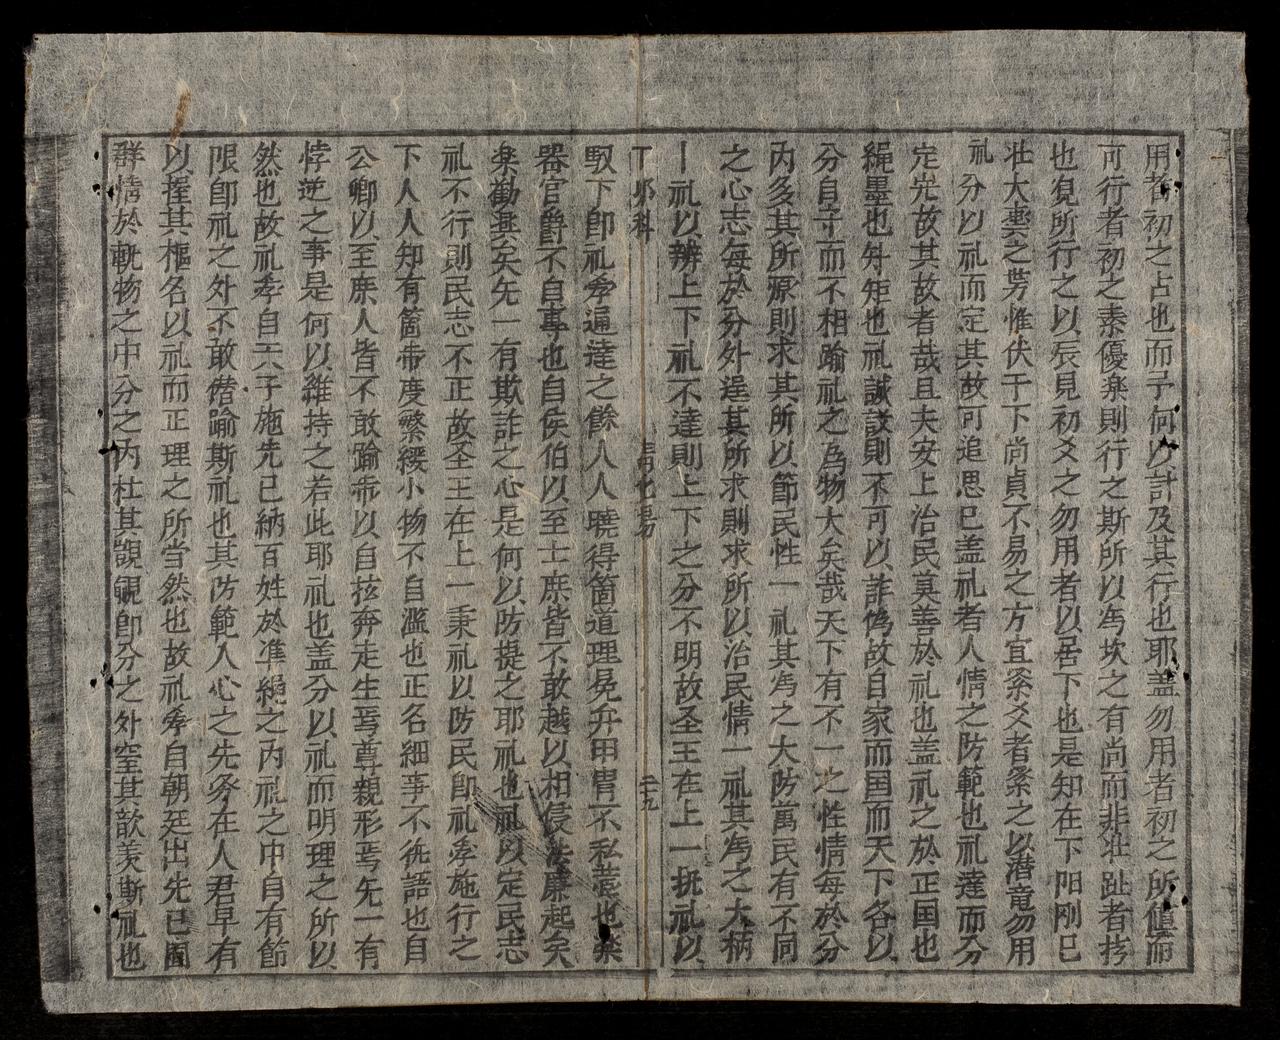 用者初之占也而予何以計及其行也耶盖勿用者初之所值而
可行者初之素優楽則行之斯所以為坎之有尚而非壮趾者拷
也覓所行之以辰見初爻之勿用者以居下也是知在下阳刚已
壮大輿之势惟伏于下尚貞不易之方宜祭爻者祭之以潜竜勿用
礼分以礼而定其故可追思已盖礼者人情之防範也礼達而分
定尤故其故者哉且夫安上治民莫善於礼也盖礼之於正囯也
䋲墨也舛矩也礼誠設則不可以詐偽故自家而囯而天下各以
分自守而不相踰礼之為物大矣哉天下有不一之性情每於分
内多其所源則求其所以節民性一礼其為之大防萬民有不同
之心志每於分外逞其所求則求所以治民情一礼其為之大柄
丨礼以辨上下礼不達則上下之分不明故圣王在上一扰礼以
丁卯科 青化易 二十九
馭下即礼斈遍達之餘人人曉得箇道理冕弁甲冑不私㦯也楽
器官爵不自専也自侯伯以至士庶皆不敢越以相侵法廉起矣
矣勸冀矣旡一有欺詐之心是何以防提之耶礼也礼以定民志
礼不行則民志不正故圣王在上一秉礼以防民即礼斈施行之
下人人知有箇希度繁纓小物不自濫也正名細事不徇語也自
公卿以至庶人皆不敢踰希以自㧋奔走生焉尊親形焉旡一有
悖逆之事是何以維持之若此耶礼也盖分以礼而明理之所以
然也故礼斈自六子施先已納百姓於準䋲之内礼之中自有節
限即礼之外不敢僭踰斯礼也其防範人心之先务在人君早有
以握其樞名以礼而正理之所当然也故礼斈自朝廷出先已囿
群情於軌物之中分之内杜其覬覦即分之外窒其歆羨斯礼也